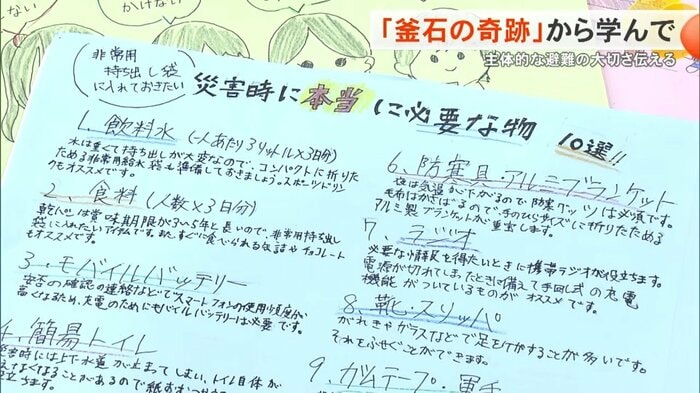 かけない
「釜石の奇跡」から学んで
主体的な避難の大切さ伝える
非常用
持ち出し袋
に入れておきたい
災害時に本当に必要な物 10選!!
1. 飲料水 (一人あたり3リットル×3日分)
水は重くて持ち出しが大変なので、コンパクトに折りた
ためる非常用給水袋も準備しておきましょう。スポーツドリン
クもオススメです。
2. 食料 (人数×3日分)
乾パンは賞味期限が3〜5年と長いので、非常用持ち出し
袋に入れたいアイテムです。また、すぐに食べられる缶詰やチョコレート
もオススメです。
3. モバイルバッテリー
安否の確認の連絡などでスマートフォンの使用頻度が
高くなるため、充電のためにモバイルバッテリーは必要です。
4. 簡易トイレ
災害時には上下水道が止まってしまい、トイレ自体が
えなくなることがあるので紙おむつ
立ちます。
6. 防寒具・アルミブランケット
夜は気温が下がるので防寒グッズは必須です。
毛布はかさばるので、手のひらサイズに折りたためる
アルミ製ブランケットが重宝します。
7. ラジオ
必要な情報を得たいときに携帯ラジオが役立ちます。
電源が切れてしまったときに備えて手回し式の充電
機能がついているものがオススメです。
8. 靴・スリッパ
がれきやガラスなどで足をケガすることが多いです。
それをふせぐことができます。
9. ガムテープ・軍手